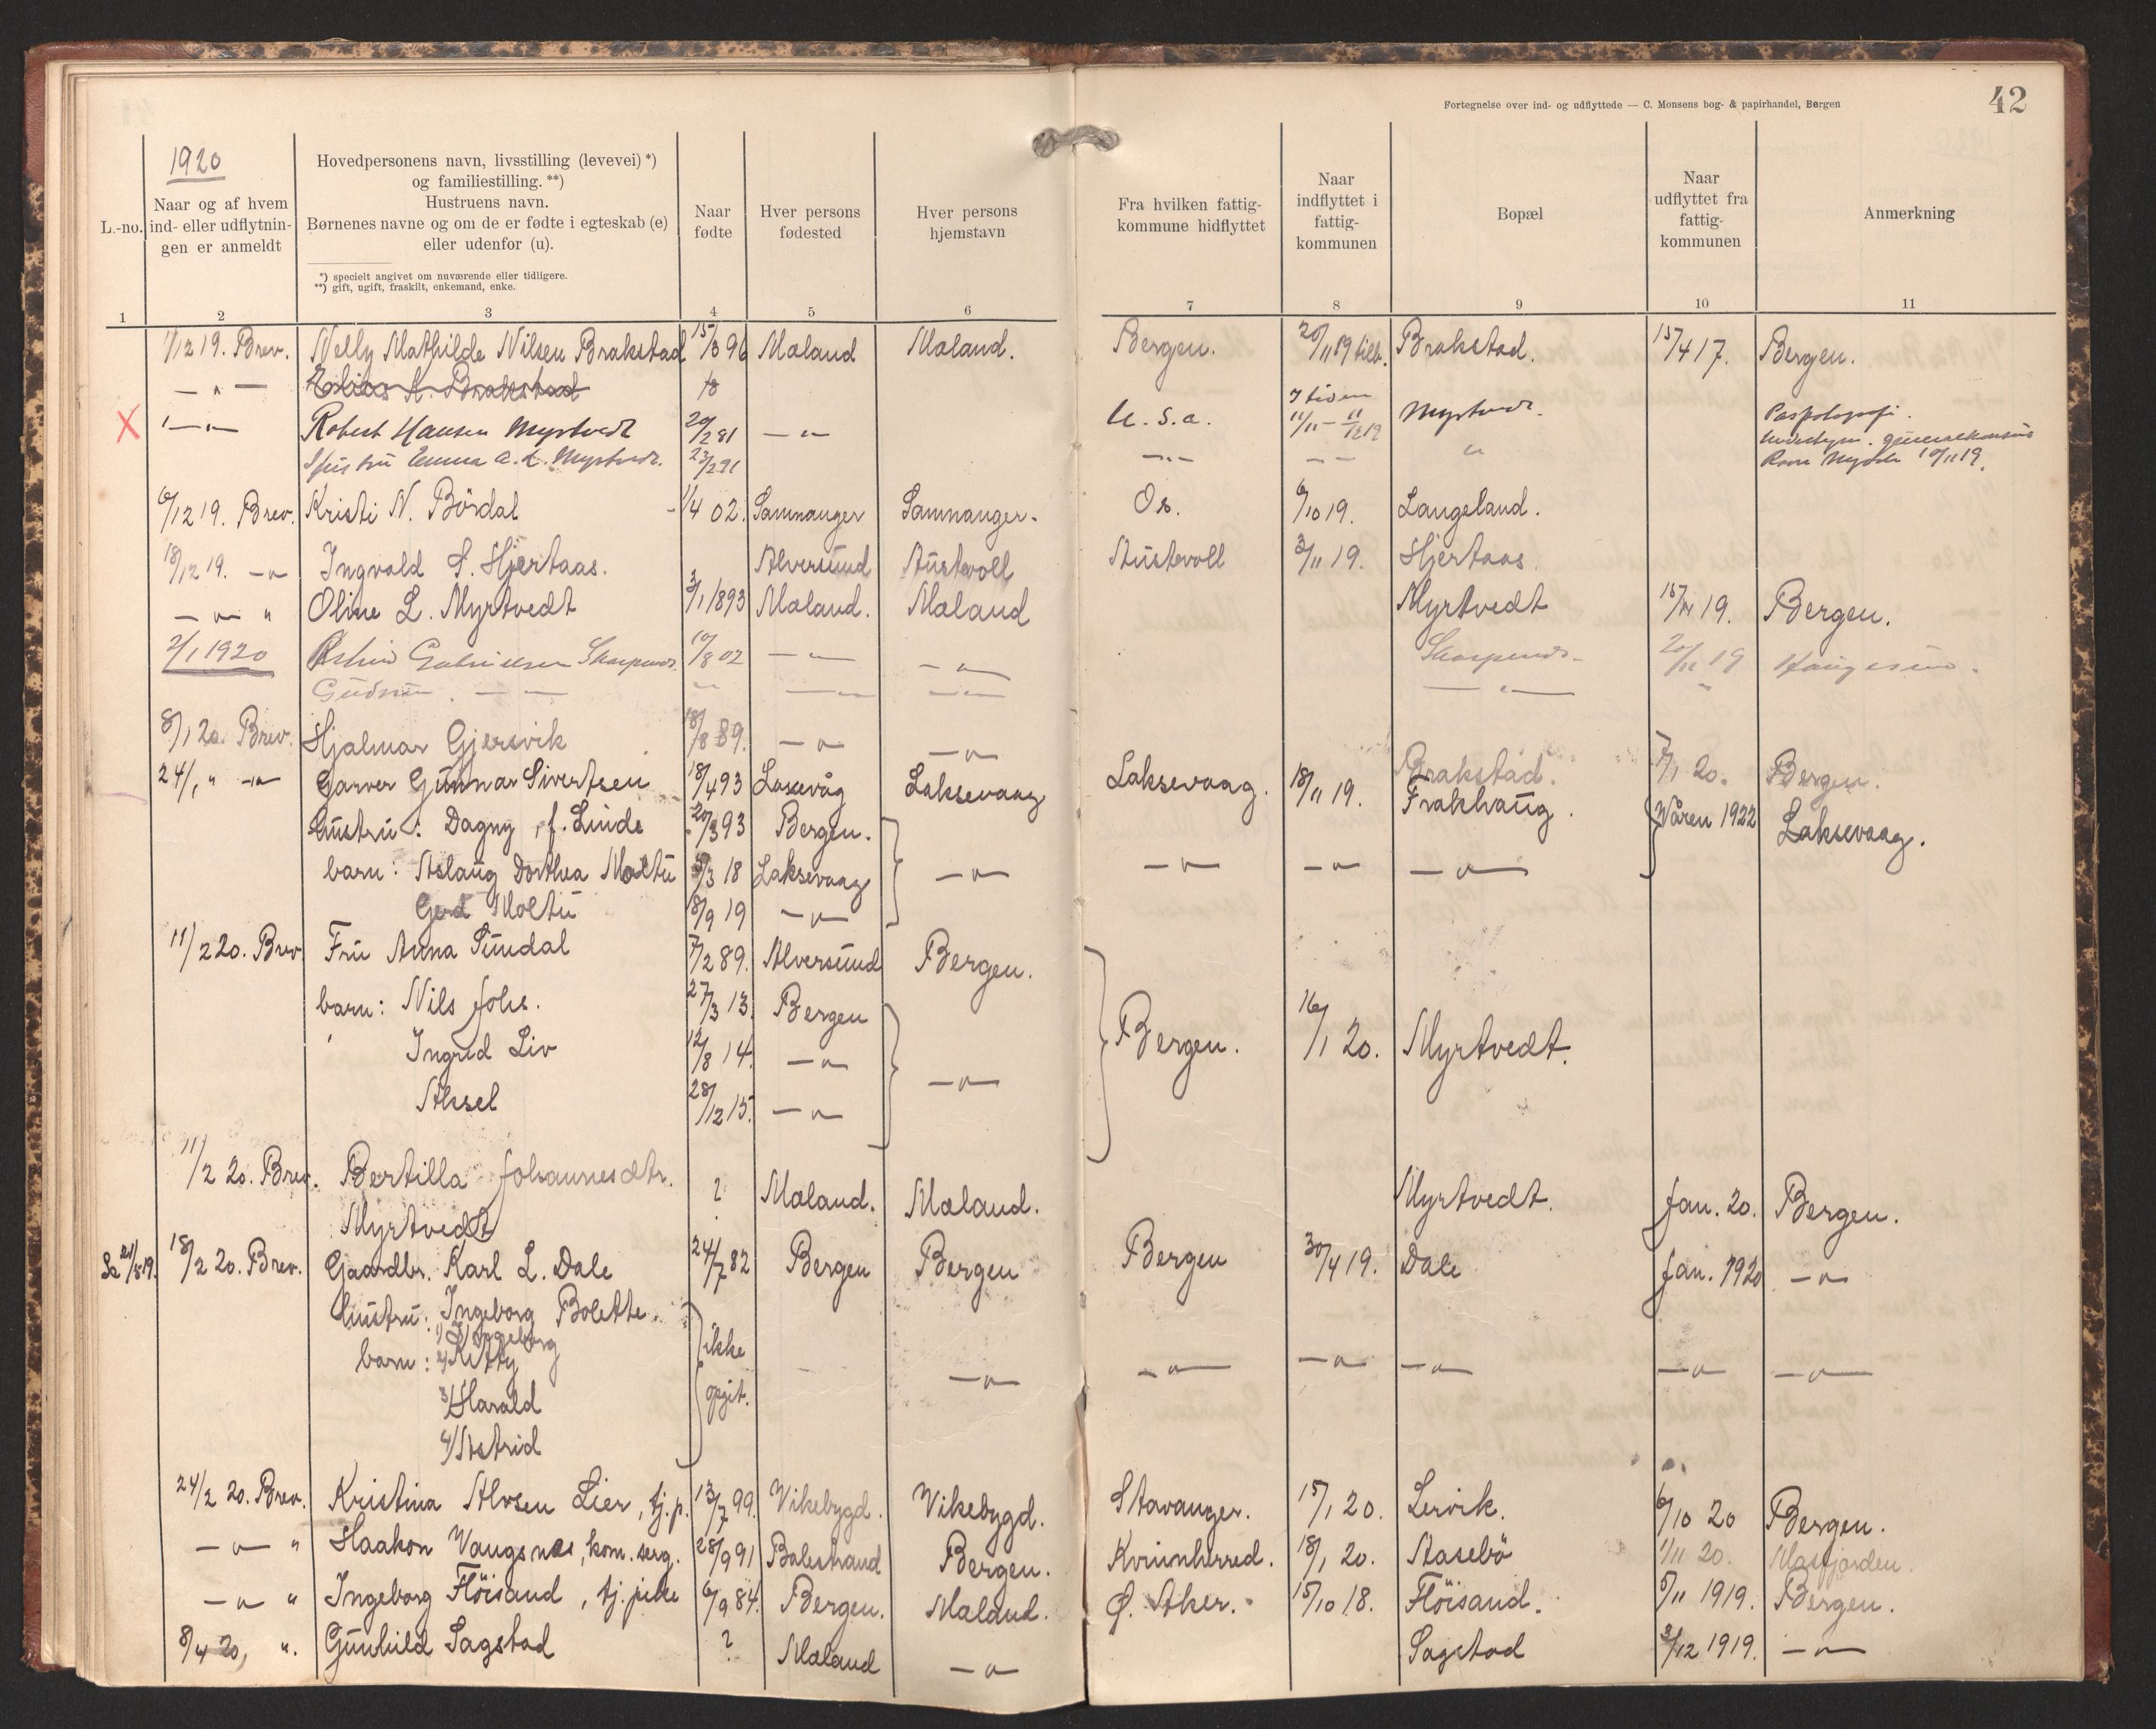 Fortegnelse over ind- og udflyttede — C. Monsens bog- & papirhandel, Bergen
42
1920
L.-no.
Naar og af hvem
ind- eller udflytnin-
gen er anmeldt
Hovedpersonens navn, livsstilling (levevei) *)
og familiestilling. **)
Hustruens navn.
Børnenes navne og om de er fødte i egteskab (e)
eller udenfor (u).
*) specielt angivet om nuværende eller tidligere.
**) gift, ugift, fraskilt, enkemand, enke.
Naar
fødte
Hver persons
fødested
Hver persons
hjemstavn
Fra hvilken fattig-
kommune hidflyttet
Naar
indflyttet i
fattig-
kommunen
Bopæl
Naar
udflyttet fra
fattig-
kommunen
Anmerkning
1 2 3 4 5 6 7 8 9 10 11
1/12 19. Brev. Nelly Mathilde Nilsen Brakstad 15/3 96 Mæland Mæland. Bergen. 20/11 89 tilb. Brakstad. 15/4 17. Bergen.
— " — Brakstad
X — " — Robert Hansen Myrtvedt 20/2 81 — " — U.S.a. 11/11 - 11/12 19 Myrtvedt.
Hustru Emma A. L. Myrtvedt. 23/2 91 — " — — " — " 10/11 19.
6/12 19. Brev. Kristi N. Børdal 1/4 02. Samnanger Samnanger. Os. 6/10 19. Langeland.
18/12 19. — " Ingvald S. Hjertaas. Alversund Austevoll Austevoll 3/11 19. Hjertaas.
— " — " Oline L. Myrtvedt 3/1 1893 Mæland. Mæland Myrtvedt 19. Bergen.
2/1 1920 Astrid Gabrielsen 10/8 02 — " — — " — 19 Haugesund.
Gudrun. — " — " — " — — " — — " — "
8/1 20. Brev. Hjalmar Gjersvik 18/8 89. — " — — " — Brakstad. 7/1 20. Bergen.
24/1 " — " Garver Gunnar Sivertsen 18/4 93 Laxevåg Laksevaag Laksevaag. 18/11 19. Frakhaug. Våren 1922 Laksevaag.
Hustru: Dagny, f. Linde 20/3 93 Bergen.
barn: Aslaug Dorthea Moltu 3/3 18 Laksevaag — " — — " — — " — — " —
Gerd Moltu 8/9 19 — " —
11/2 20. Brev Fru Anna Sundal 7/2 89. Alversund Bergen.
barn: Nils Johs. 27/3 13. Bergen
Ingrid Liv 12/8 14. — " — — " — Bergen. 16/1 20. Myrtvedt.
Aksel 28/12 15. — " —
11/2 20. Brev. Bertilla Johannesdtr. ? Mæland. Mæland. Myrtvedt. Jan. 20. Bergen.
Myrtvedt
Se 21/8 19. 18/2 20. Brev. Gaardbr. Karl L. Dale 24/7 82 Bergen Bergen Bergen 30/4 19. Dale Jan. 1920 — " —
Hustru: Ingeborg Bolette. ikke
barn: 1/ Ingeborg
2/ Kitty — " — — " — — " — — " — — " — — " —
3/ Harald opgit.
4/ Astrid
24/2 20. Brev. Kristina Alvsen Lier, tj.p. 13/7 99. Vikebygd. Vikebygd. Stavanger. 15/1 20. Lervik. 6/10 20 Bergen.
— " — " Haakon Vangsnes, kom. serg. 28/9 91 Balestrand Bergen. Kvinnherred. 18/1 20. Aasebö 1/11 20. Masfjorden.
— " — " Ingeborg Flöisand, tj.pike 6/9 84. Bergen. Mæland. Ø. Aker. 15/10 18. Flöisand. 5/11 1919. Bergen.
8/4 20, ". Gunhild Sagstad ? Mæland — " — Sagstad 3/12 1919. — " —